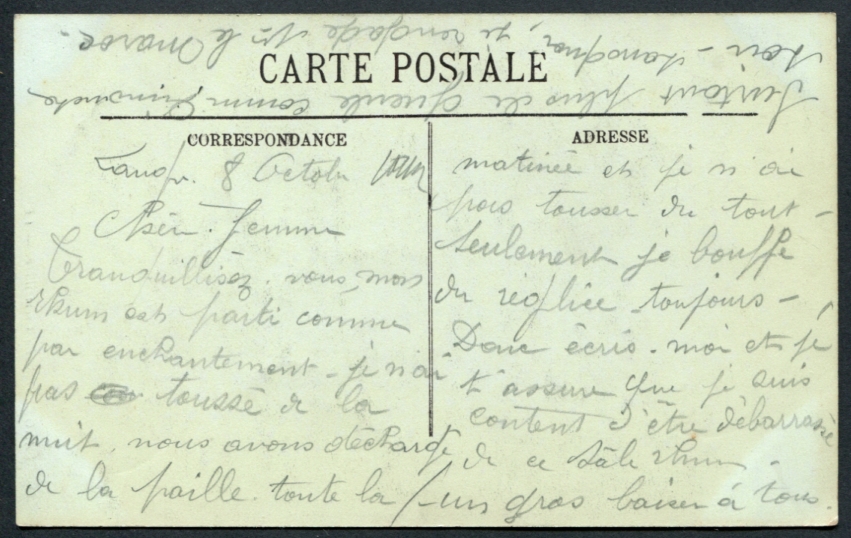 CARTE POSTALE
CORRESPONDANCE
8 Octobre
Chère Femme
Tranquillisez-vous, mon
rhum est parti comme
par enchantement - je n'ai
pas toussé de la
nuit, nous avons déchargé
de la paille toute la
ADRESSE
matinée et je n'ai
pas tousser du tout -
Seulement je bouffe
du réglice toujours -
Donc écris-moi et je
t'assure que je suis
content d'être débarrassé
de ce sâle rhum -
un gros baiser à tous.
Surtout plus de comme Dimanche
soir - je sur le Maroc -